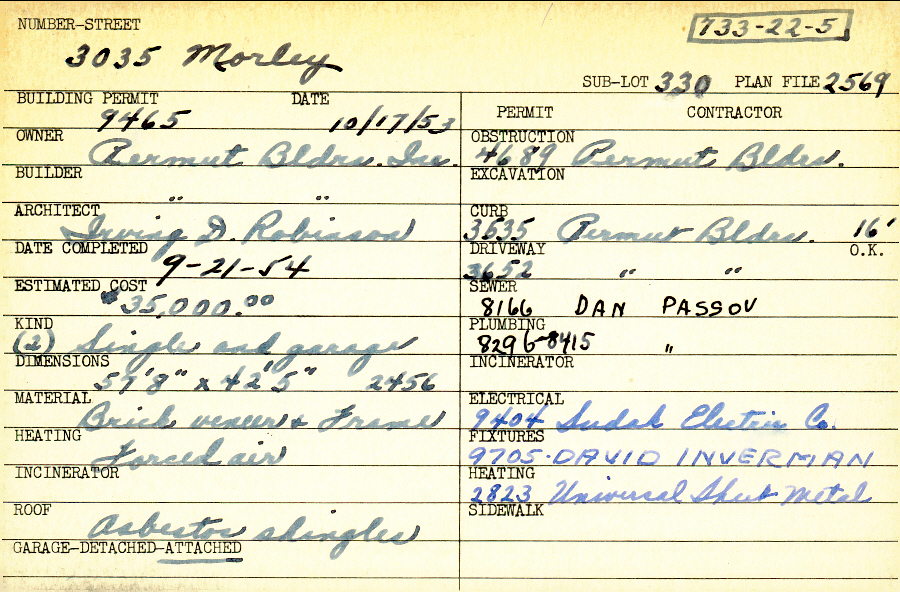 NUMBER-STREET
733-22-5
3035 Morley
SUB-LOT 330 PLAN FILE 2569
BUILDING PERMIT DATE
9465 10/17/53
OWNER
Permut Bldrs. Inc.
BUILDER
" "
ARCHITECT
Irving D. Robinson
DATE COMPLETED
9-21-54
ESTIMATED COST
$35,000.00
KIND
(2) Single and garage
DIMENSIONS
57'8" x 42'5" 2456
MATERIAL
Brick veneer & Frame
HEATING
Forced air
INCINERATOR
ROOF
Asbestos shingles
GARAGE-DETACHED-ATTACHED
PERMIT CONTRACTOR
OBSTRUCTION
4689 Permut Bldrs.
EXCAVATION
CURB
3535 Permut Bldrs. 16'
DRIVEWAY O.K.
3652 " "
SEWER
8166 DAN PASSOV
PLUMBING
8296-8415 "
INCINERATOR
ELECTRICAL
9404 Sudak Electric Co.
FIXTURES
9705-DAVID INVERMAN
HEATING
2823 Universal Sheet Metal
SIDEWALK